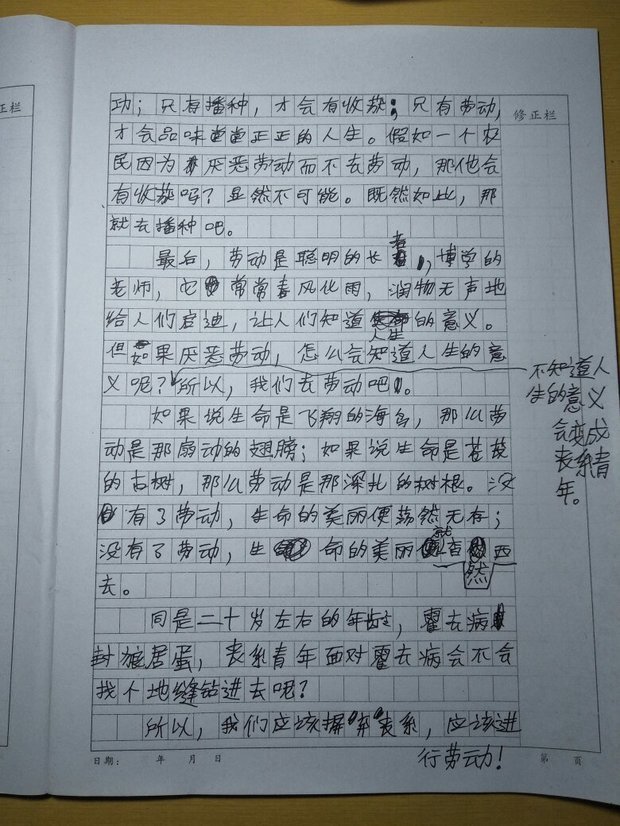 正栏
修正栏
功；只有播种，才会有收获；只有劳动，
才会品味堂堂正正的人生。假如一个农
民因为厌恶劳动而不去劳动，那他会
有收获吗？显然不可能。既然如此，那
就去播种吧。
最后，劳动是聪明的长者，博学的
老师，它常常春风化雨，润物无声地
给人们启迪，让人们知道人生的意义。
但如果厌恶劳动，怎么会知道人生的意
义呢？不知道人
生的意义
会变成
丧系青
年。
所以，我们去劳动吧。
如果说生命是飞翔的海鸟，那么劳
动是那扇动的翅膀；如果说生命是苍茂
的古树，那么劳动是那深扎的树根。没
有了劳动，生命的美丽便荡然无存；
没有了劳动，生命的美丽就杳然西
去。
同是二十岁左右的年龄，霍去病
封狼居蛋，丧系青年面对霍去病会不会
找个地缝钻进去呢？
所以，我们应该摒弃丧系，应该进
行劳动！
日期： 年 月 日
第 页